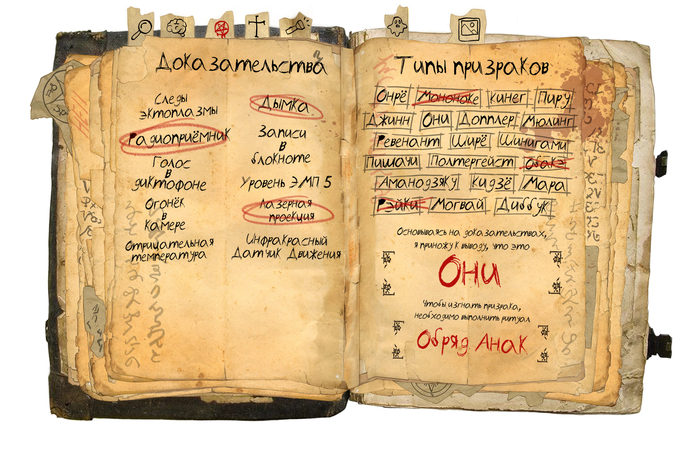 Доказательства
Следы
эктоплазмы
Дымка
Радиоприёмник
Записи
в
блокноте
Голос
в
диктофоне
Уровень ЭМП 5
Огонёк
в
камере
Лазерная
проекция
Отрицательная
температура
Инфракрасный
Датчик Движения
Типы призраков
Онрё Мононоке Кинег Пиру
Джинн Они Допплер Мюлинг
Ревенант Ширё Шинигами
Пишачи Полтергейст Обакэ
Аманодзяку Кидзё Мара
Рэйки Могвай Диббук
Основываясь на доказательствах,
я прихожу к выводу, что это
Они
Чтобы изгнать призрака,
необходимо выполнить ритуал
Обряд Анак